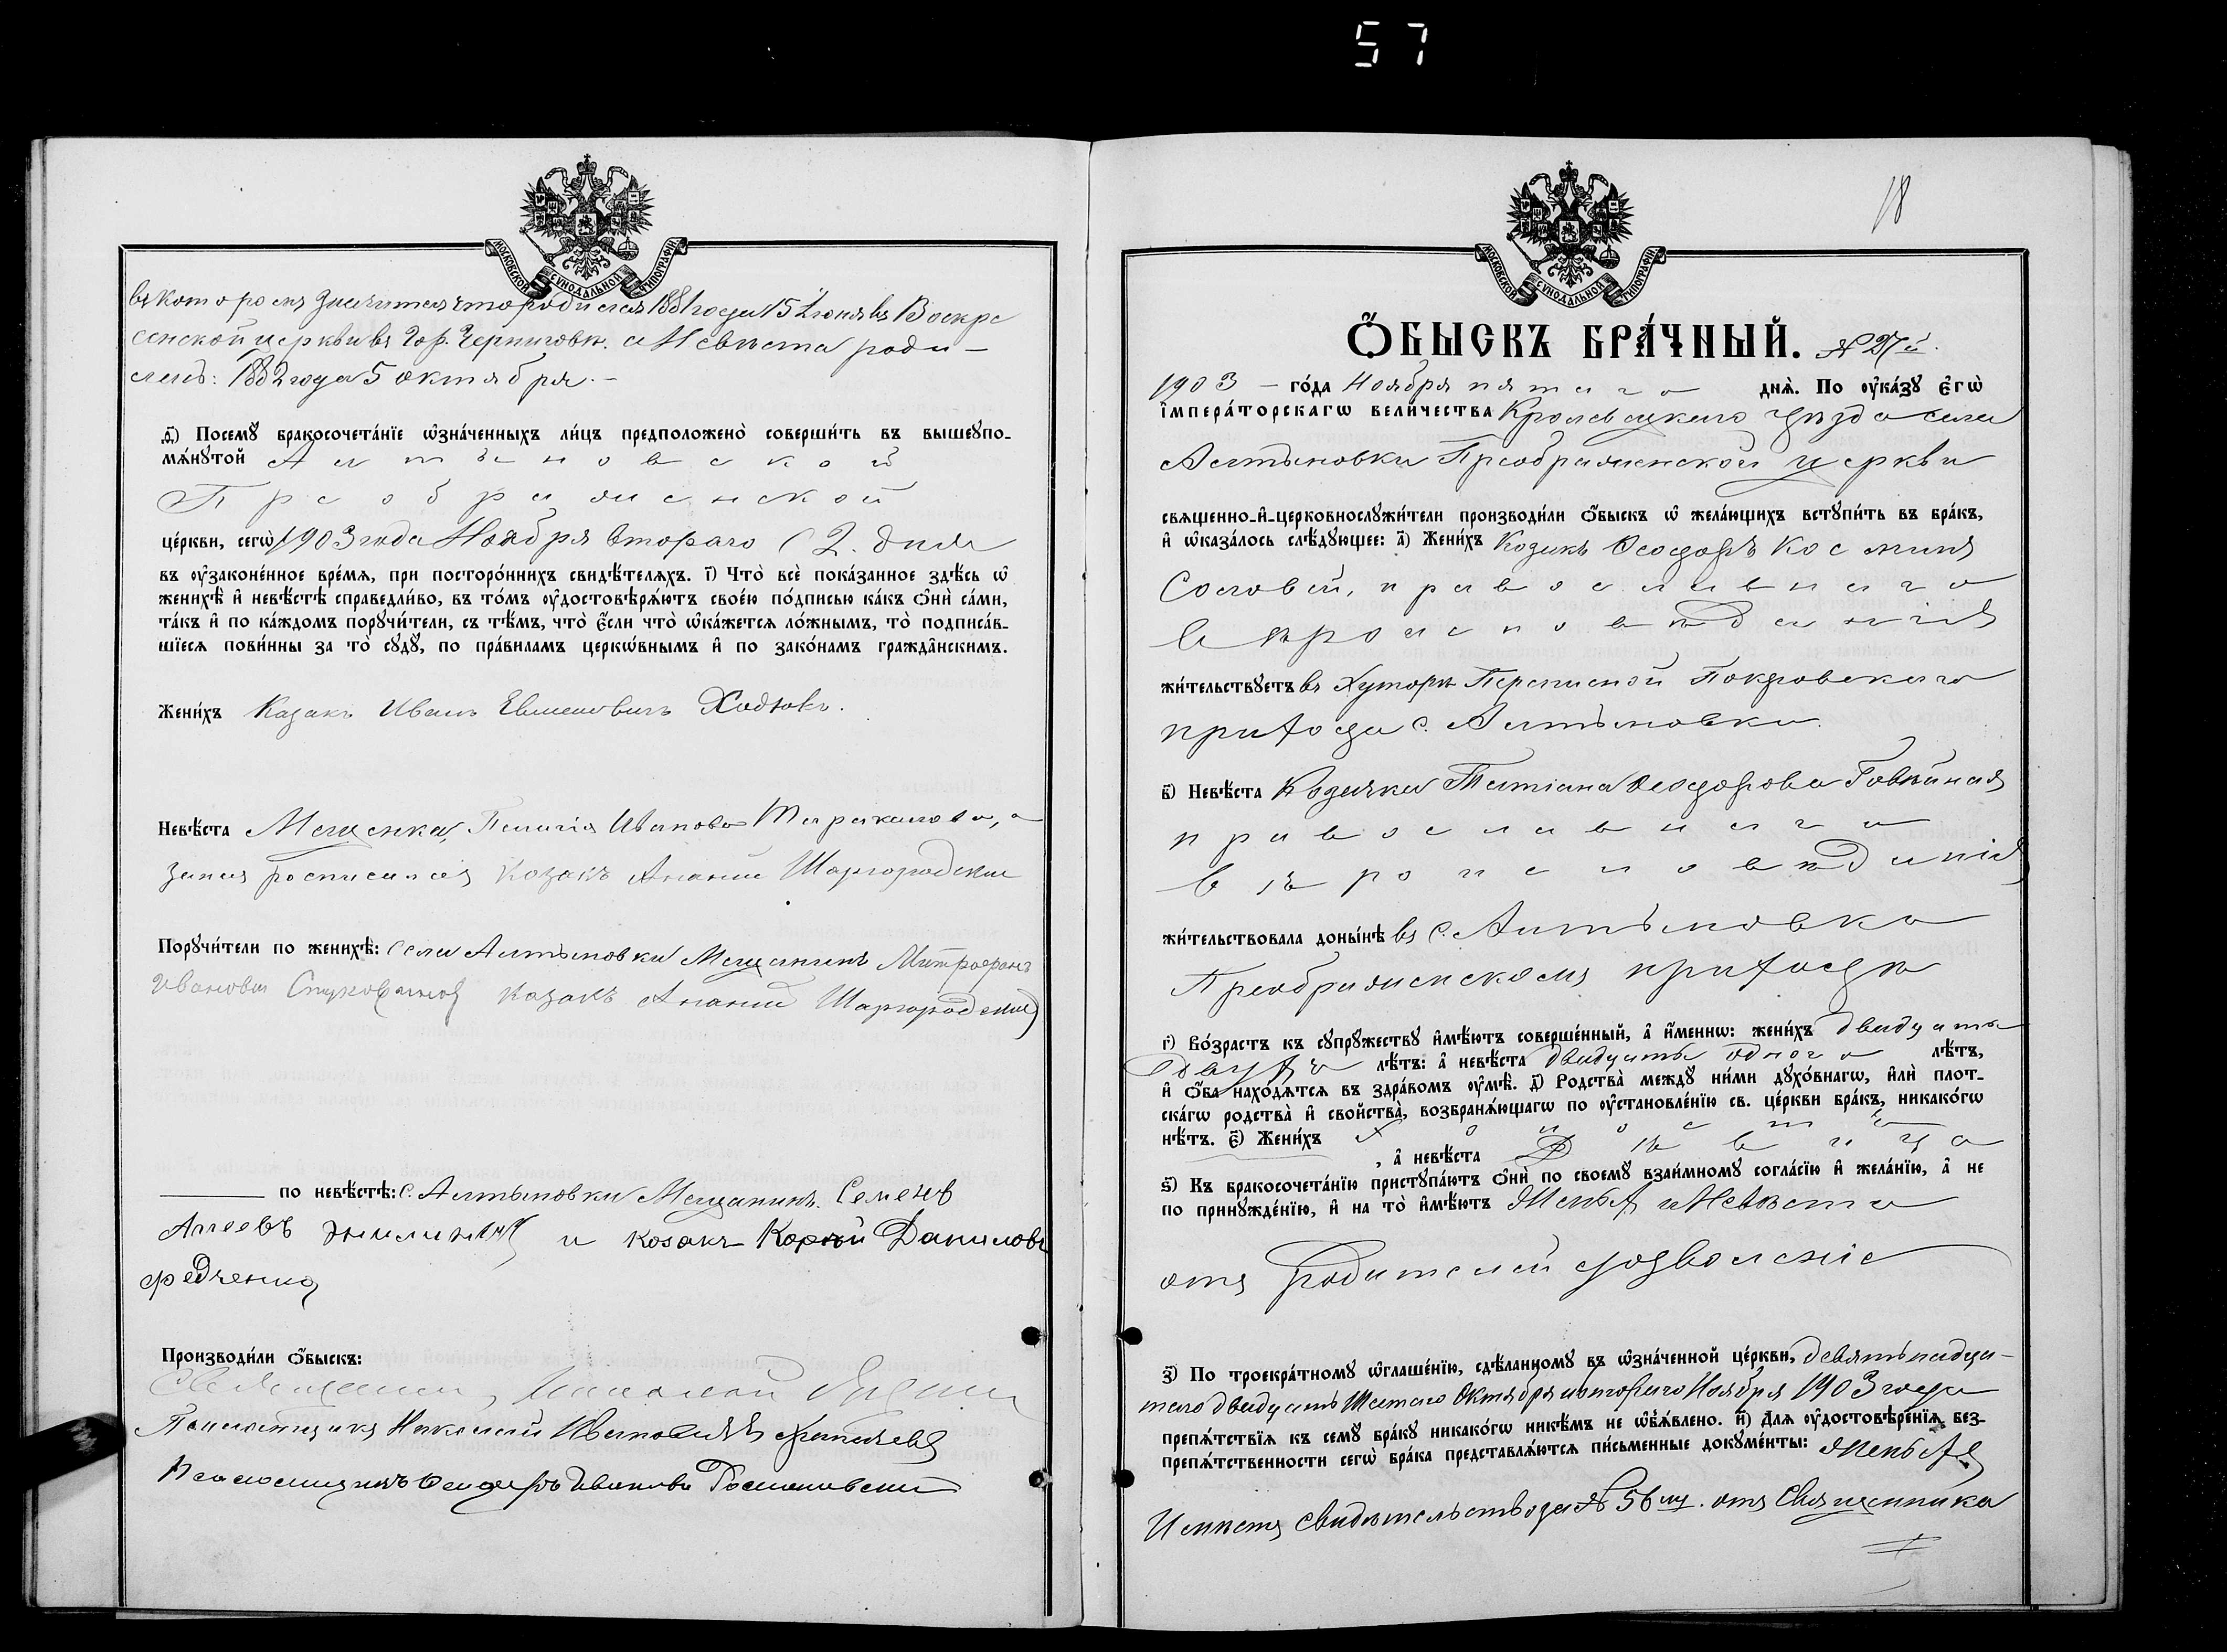 57
МОСКОВСКОЙ СУНОДАЛЬНОЙ ТИПОГРАФІИ
въ которомъ значится что родился 1881 года 15 Іюня въ Воскре
сенской церкви въ Гор. Чернигов. а Невеста роди-
лась: 1882 года 5 октября. -
д҃) Посемꙋ̀ бракосочета́нїе ѡ҆зна́ченныхъ ли́цъ предположено̀ соверши́ть въ вышеꙋпо-
мѧ́нꙋтой Алтыновской
Преображенской
це́ркви, сегѡ̀ 1903 года Ноября второго (2. дня
въ ᲂу҆законе́нное вре́мѧ, при посторо́ннихъ свидѣ́телѧхъ. і҃) Что̀ всѐ пока́занное здѣ́сь ѡ҆
женихѣ̀ и҆ невѣ́стѣ справедли́во, въ то́мъ ᲂу҆достовѣрѧ́ютъ свое́ю по́дписью ка́къ ѻ҆нѝ са́ми,
та́къ и҆ по ка́ждомъ порꙋчи́тели, съ тѣ́мъ, что̀ є҆́сли что̀ ѡ҆ка́жетсѧ ло́жнымъ, то̀ подписа́в-
шїесѧ пови́нны за то̀ сꙋдꙋ̀, по пра́виламъ церко́внымъ и҆ по зако́намъ гражда́нскимъ.
Жени́хъ Казакъ Иванъ Ходюкъ.
Невѣ́ста Мещенка, Пелагія Иванова Тараканова, а
за нея росписался козакъ Ананій Шаргородскій
Порꙋчи́тели по женихѣ̀: Села Алтыновки Мещанинъ Митрофанъ
Ивановъ козакъ Ананій Шаргородский
по невѣ́стѣ: С. Алтыновки Мещанинъ. Семенъ
и козакъ Корній Даниловъ
Федченко
Производи́ли ѻ҆́быскъ:
Священник Николай
Псаломщикъ Николай Ивановичъ
Псаломщикъ Феодоръ Ивановъ
18
МОСКОВСКОЙ СУНОДАЛЬНОЙ ТИПОГРАФІИ
Ѻ҆́БЫСКЪ БРА́ЧНЫЙ. № 27й.
1903 - го́да Ноября пятаго днѧ̀. По ᲂу҆ка́зꙋ є҆гѡ̀
і҆мпера́торскагѡ вели́чества Кролевецкаго Уѣзда села
Алтыновки Преображенской церкви
свѧщенно-и҆-церковнослꙋжи́тели производи́ли ѻ҆́быскъ ѡ҆ жела́ющихъ встꙋпи́ть въ бра́къ,
и҆ ѡ҆каза́лось слѣ́дꙋющее: а҃) Жени́хъ Козакъ Феодоръ Косминъ
Соловей, православнаго
вѣроисповѣданія
жи́тельствꙋетъ въ Хуторѣ Покровскаго
прихода с. Алтыновки.
в҃) Невѣ́ста Козачка Татіана Феодорова
православнаго
вѣроисповѣданія
жи́тельствовала доны́нѣ въ с. Алтыновка
Преображенскомъ приходѣ
г҃) Во́зрастъ къ сꙋпрꙋ́жествꙋ и҆мѣ́ютъ соверше́нный, а҆ и҆́меннѡ: жени́хъ двадцать
двухъ лѣ́тъ: а҆ невѣ́ста двадцать одного лѣ́тъ,
и҆ ѻ҆́ба нахо́дѧтсѧ въ здра́вомъ ᲂу҆мѣ̀. д҃) Родства̀ междꙋ̀ ни́ми дꙋхо́внагѡ, и҆лѝ плот-
ска́гѡ родства̀ и҆ свойства̀, возбранѧ́ющагѡ по ᲂу҆становле́нїю св. це́ркви бра́къ, никако́гѡ
нѣ́тъ. є҃) Жени́хъ холостъ
, а҆ невѣ́ста Дѣвица
ѕ҃) Къ бракосочета́нїю пристꙋпа́ютъ ѻ҆нѝ по своемꙋ̀ взаи́мномꙋ согла́сїю и҆ жела́нїю, а҆ не
по принꙋжде́нїю, и҆ на то̀ и҆мѣ́ютъ Женихъ и Невѣста
отъ родителей дозволеніе
з҃) По троекра́тномꙋ ѡ҆глаше́нїю, сдѣ́ланномꙋ въ ѡ҆зна́ченной це́ркви, девятнадца-
таго двадцать Шестаго Октября и второго Ноября 1903 года
препѧ́тствїѧ къ семꙋ̀ бра́кꙋ никако́гѡ никѣ́мъ не ѡ҆б̾ѧ́влено. и҃) Длѧ̀ ᲂу҆достовѣре́нїѧ без-
препѧ́тственности сегѡ̀ бра́ка представлѧ́ютсѧ пи́сьменные докꙋме́нты: Женихъ
Имѣетъ свидѣтельство за № 56 мъ. отъ Священника